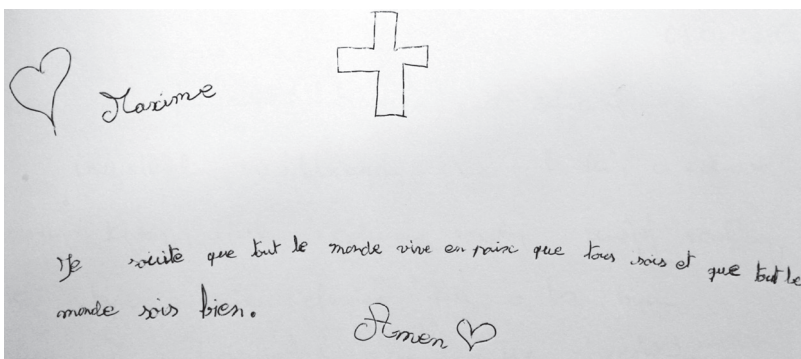 Maxime
Je souite que tout le monde vive en paix que tous sois et que tout le
monde sois bien.
Amen